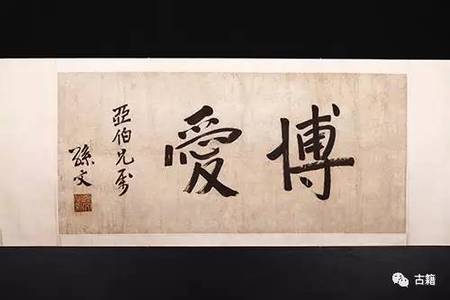 博愛
亞伯兄屬
孫文
古籍